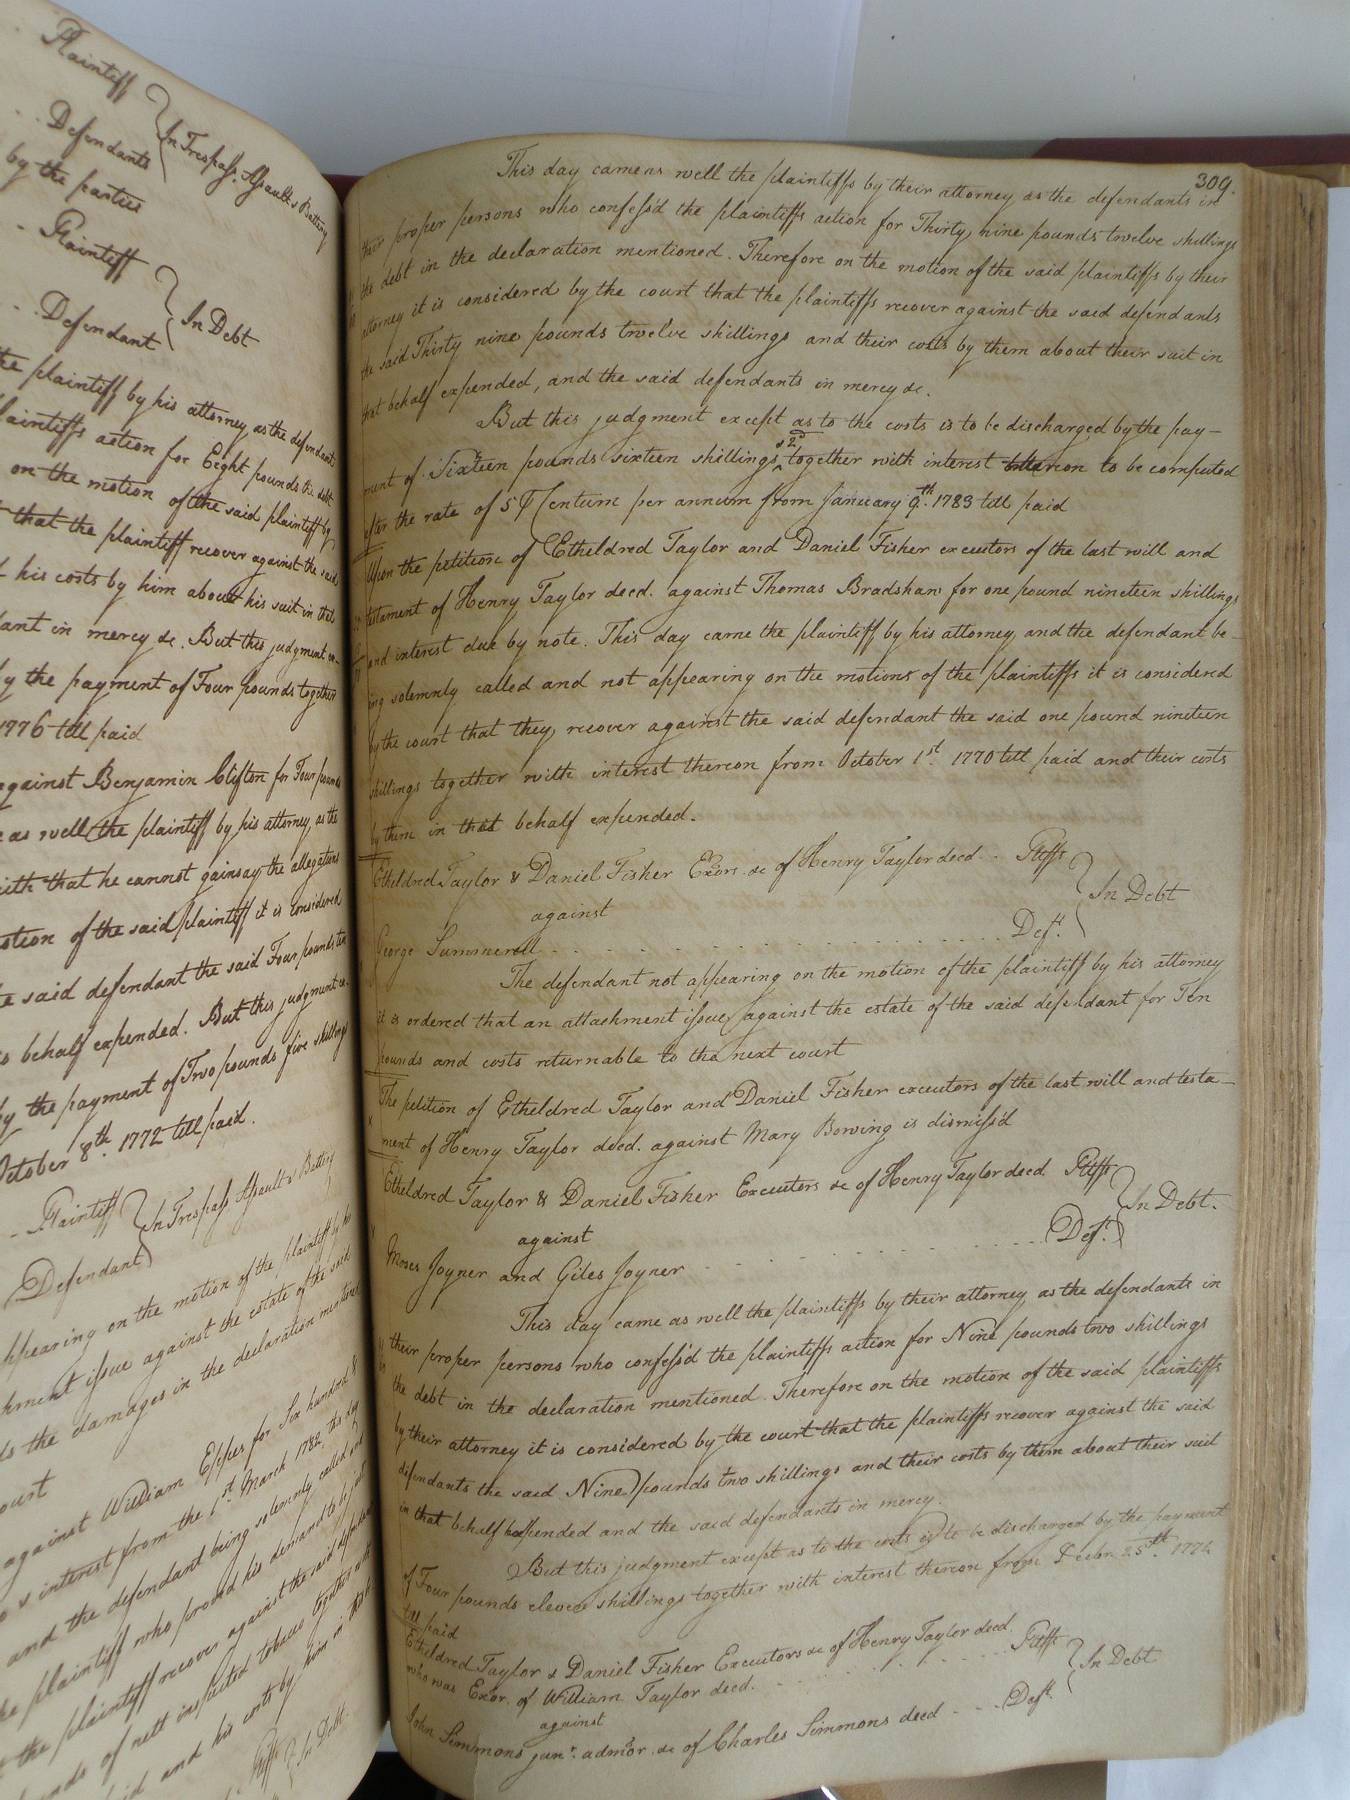 Plaintiff
In Trespass, Assault & Battery
Defendants
by the parties
Plaintiff
In Debt
Defendant
the plaintiff by his attorney as the defendant
plaintiffs action for Eight pounds the debt
on the motion of the said plaintiff by
that the plaintiff recover against the said
his costs by him about his suit in that
in mercy &c. But this judgment ex-
by the payment of Four pounds together
1776 till paid
against Benjamin Clifton for Four pounds
as well the plaintiff by his attorney, as the
that he cannot gainsay the allegations
motion of the said plaintiff it is considered
said defendant the said Four pounds ten
behalf expended. But this judgment ex-
by the payment of Two pounds five shillings
October 8th. 1772 till paid.
Plaintiff
In Trespass Assault & Battery
Defendant
appearing on the motion of the plaintiff by his
issue against the estate of the said
the damages in the declaration mentioned
court
against William Eppes for Six hundred &
& interest from the 1st. March 1782, this day
and the defendant being solemnly called and
the plaintiff who proved his demand to be just
the plaintiff recover against the said defendant
of nett inspected tobacco together with
and his costs by him in this
Pltff
In Debt.
309.
This day came as well the plaintiffs by their attorney as the defendants in
their proper persons who confess'd the plaintiffs action for Thirty nine pounds twelve shillings
the debt in the declaration mentioned. Therefore on the motion of the said plaintiffs by their
attorney it is considered by the court that the plaintiffs recover against the said defendants
the said Thirty nine pounds twelve shillings and their costs by them about their suit in
that behalf expended, and the said defendants in mercy &c.
But this judgment except as to the costs is to be discharged by the pay-
ment of Sixteen pounds sixteen shillings & 2d together with interest thereon to be computed
after the rate of 5 ⅌ Centum per annum from January 9th. 1783 till paid
Upon the petition of Etheldred Taylor and Daniel Fisher executors of the last will and
testament of Henry Taylor decd. against Thomas Bradshaw for one pound nineteen shillings
and interest due by note. This day came the plaintiff by his attorney, and the defendant be-
ing solemnly called and not appearing on the motions of the plaintiffs it is considered
by the court that they recover against the said defendant the said one pound nineteen
shillings together with interest thereon from October 1st. 1770 till paid and their costs
by them in that behalf expended.
Etheldred Taylor & Daniel Fisher Exors. &c of Henry Taylor decd. . Pltffs
In Debt
against
George Summerell . . . Deft.
The defendant not appearing on the motion of the plaintiff by his attorney
it is ordered that an attachment issue against the estate of the said defendant for Ten
pounds and costs returnable to the next court
The petition of Etheldred Taylor and Daniel Fisher executors of the last will and testa-
ment of Henry Taylor decd. against Mary Bowing is dismiss'd
Etheldred Taylor & Daniel Fisher Executors &c of Henry Taylor decd Pltffs
In Debt.
against
Moses Joyner and Giles Joyner . . . Deft.
This day came as well the plaintiffs by their attorney, as the defendants in
their proper persons who confess'd the plaintiffs action for Nine pounds two shillings
the debt in the declaration mentioned. Therefore on the motion of the said plaintiffs
by their attorney it is considered by the court that the plaintiffs recover against the said
defendants the said Nine pounds two shillings and their costs by them about their suit
in that behalf expended and the said defendants in mercy.
But this judgment except as to the costs is to be discharged by the payment
of Four pounds eleven shillings together with interest thereon from Decbr. 25th. 1772
till paid
Etheldred Taylor & Daniel Fisher Executors &c of Henry Taylor decd.
who was Exor. of William Taylor decd. . . . Pltffs
In Debt
against
John Simmons junr. admor. &c of Charles Simmons decd . . . Deft.